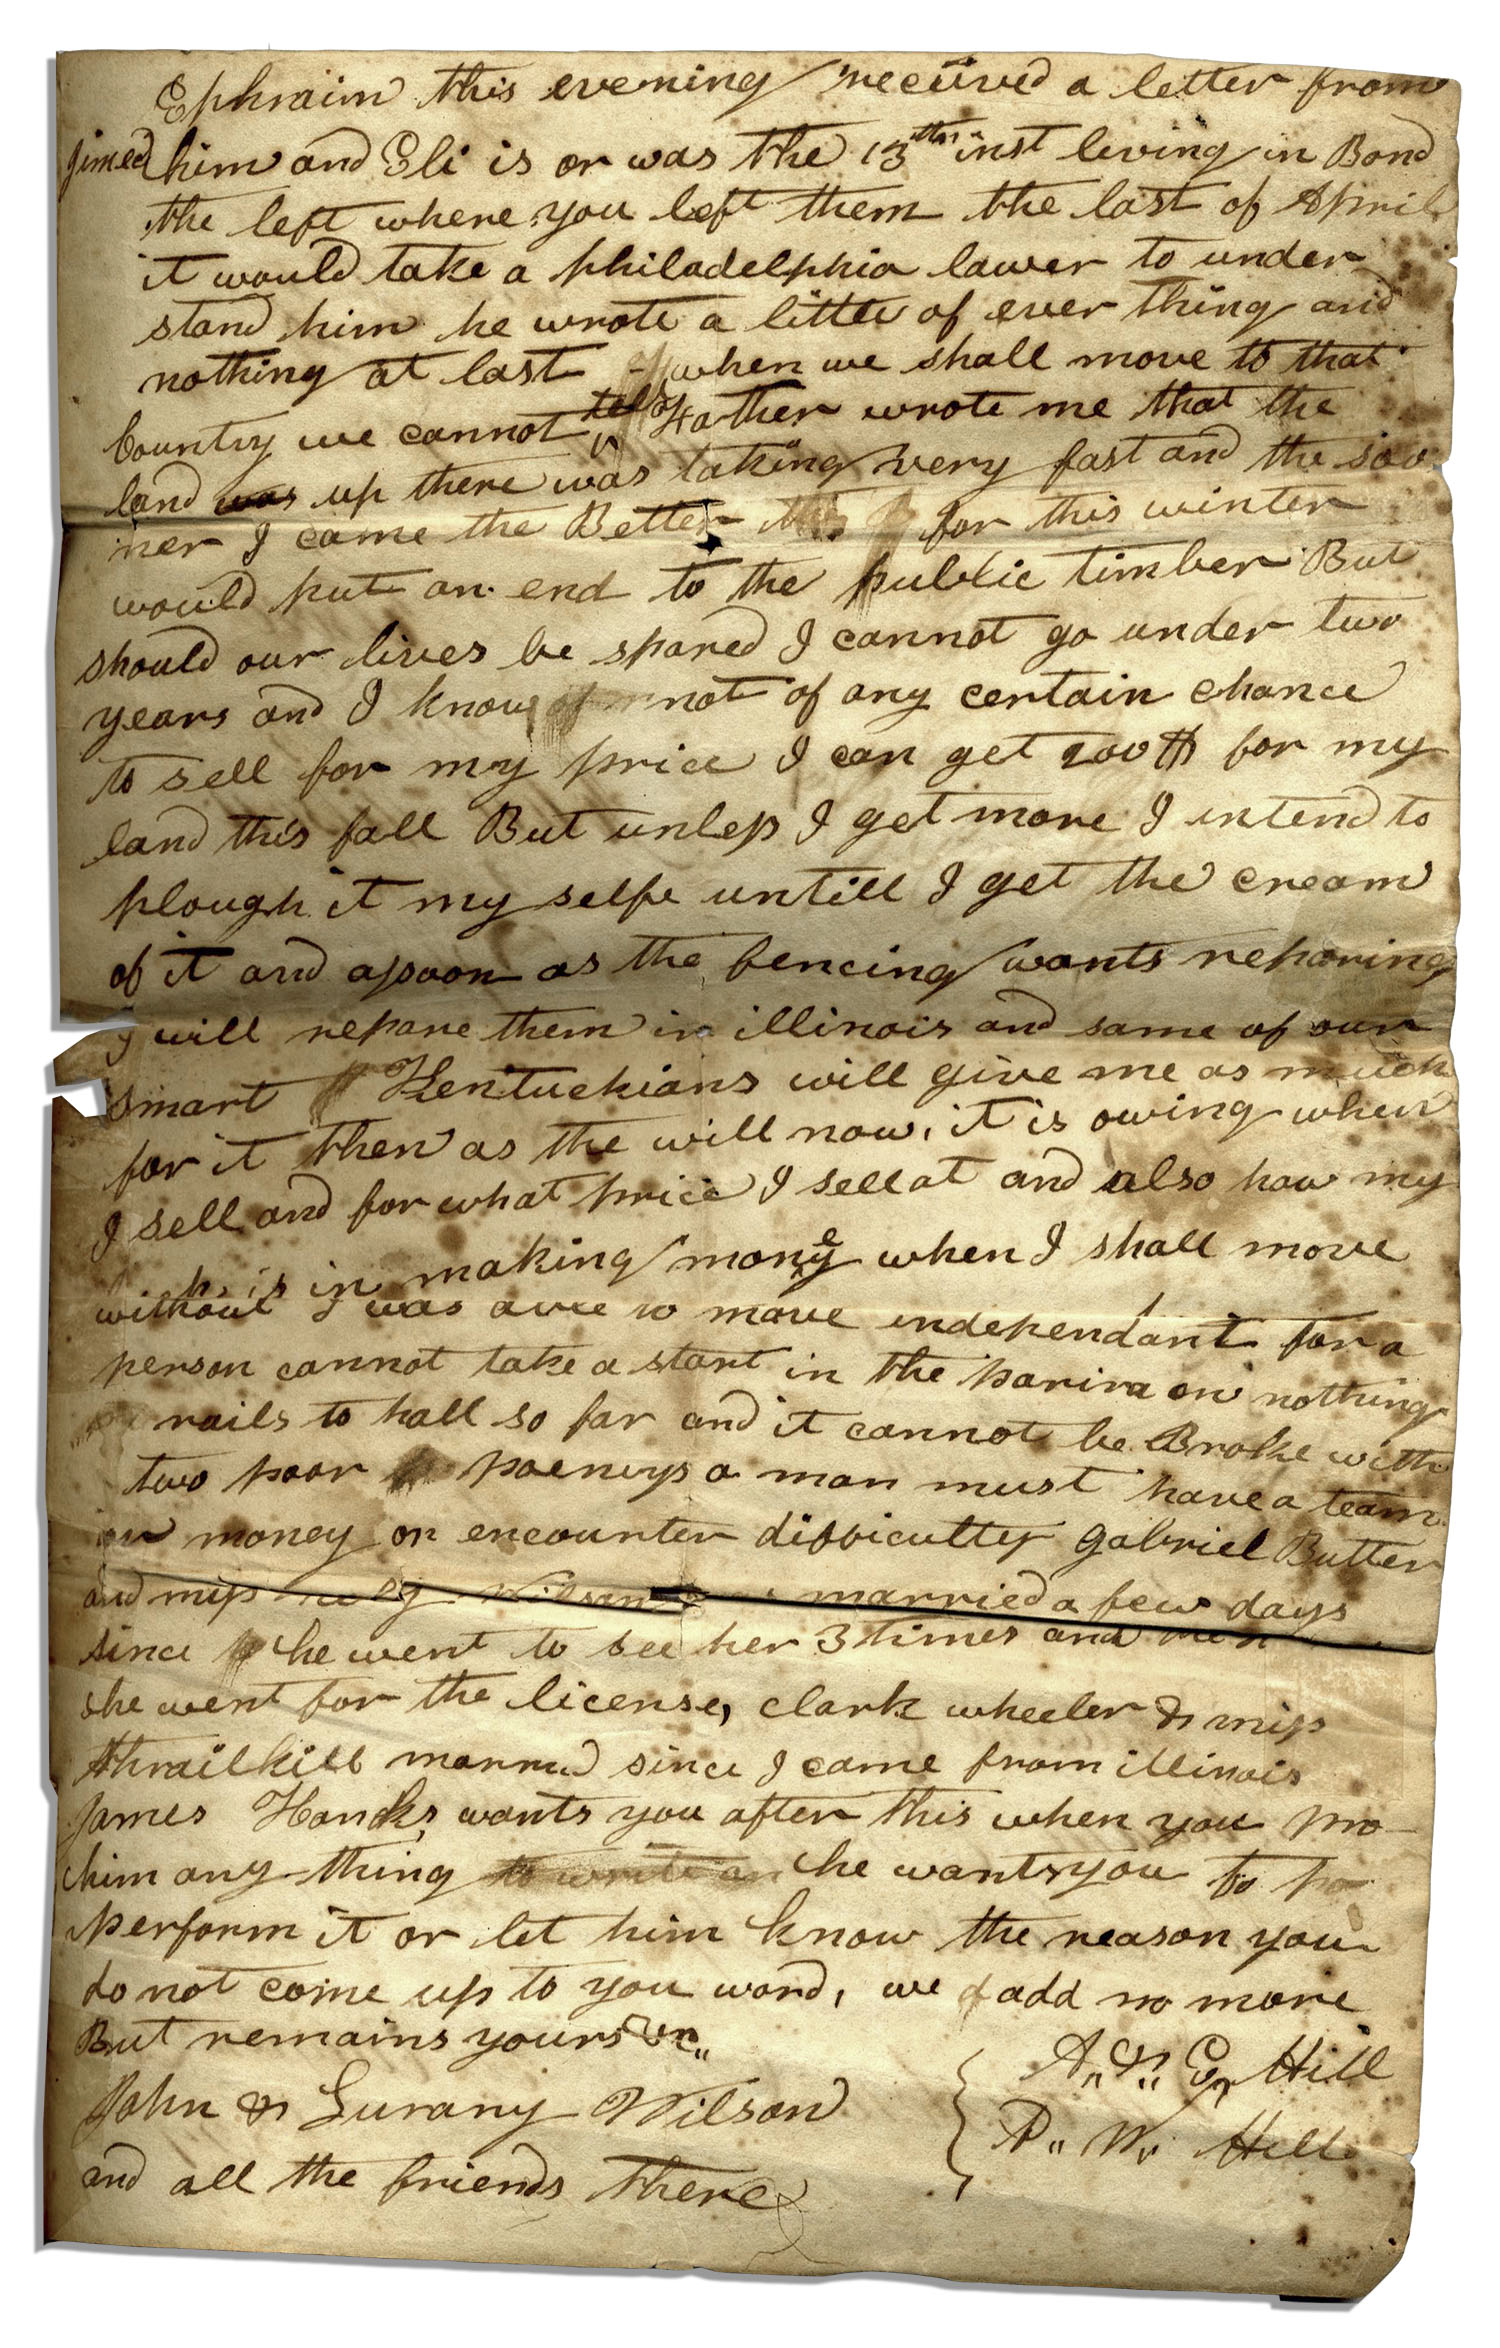 Ephraim this evening received a letter from
him and Eli is or was the 13th inst living in Bond
the left where you left them the last of April
it would take a philadelphia lawer to under
stand him he wrote a little of ever thing and
nothing at last when we shall move to that
Country we cannot tell Father wrote me that the
land was up there was taking very fast and the soo
ner I came the Better for this winter
would put an end to the public timber But
should our lives be spared I cannot go under two
years and I know not of any certain chance
to sell for my price I can get 200 $ for my
land this fall But unless I get more I intend to
plough it my selfe untill I get the cream
of it and assoon as the fencing wants reparing
I will repare them in illinois and some of our
smart Kentuckians will give me as much
for it then as the will now, it is owing when
I sell and for what price I sell at and also how my
is in making money when I shall move
without I was able to move independant for a
person cannot take a start in the parira on nothing
rails to hall so far and it cannot be Broke with
two poor poenys a man must have a team
money or encounter difficulty gabriel Butter
and miss Wilson married a few days
since he went to see her 3 times and then
she went for the license, clark wheeler & miss
thrailkill married since I came from illinois
James Hancks wants you after this when you pro
him any thing he wants you to
perform it or let him know the reason you
do not come up to you word, we add no more
But remains yours &c
John & Surany Wilson
and all the friends there
A. & E. Hill
P. W. Hill